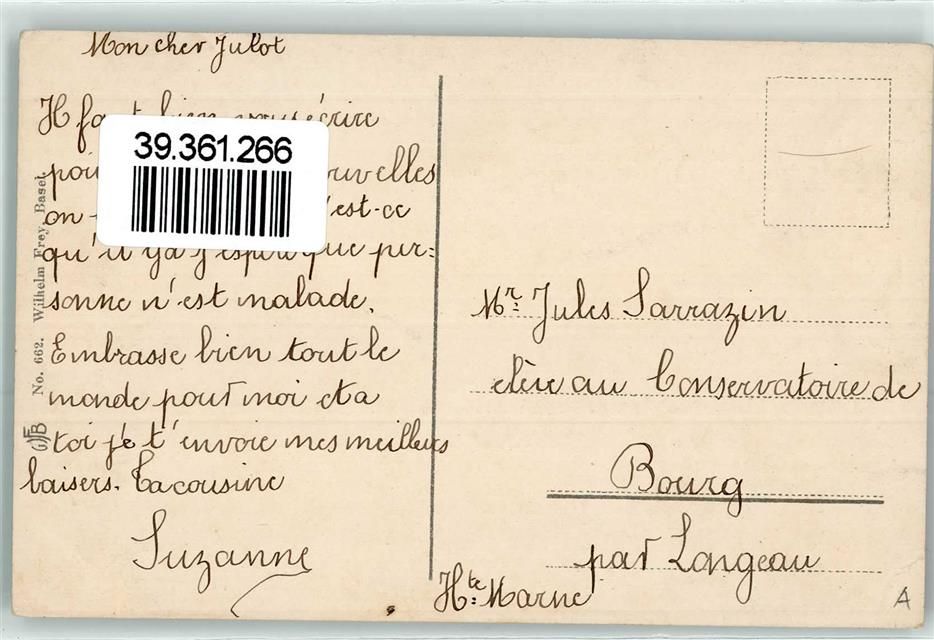 Mon cher Julot
Il fa t bien vous écrire
pou uvelles
on 'est-ce
qu'il y a j'espère que per=
sonne n'est malade.
Embrasse bien tout le
monde pour moi et a
toi je t'envoie mes meilleurs
baisers. Ta cousine
Suzanne
39.361.266
No. 662. Wilhelm Frey, Basel.
Mr. Jules Sarrazin
élève au Conservatoire de
Bourg
par Longeau
Hte: Marne
A